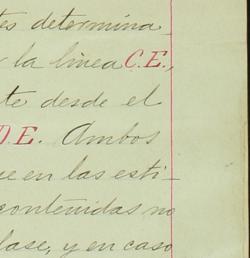 es determina_
la linea C.E.,
te desde el
D.E. Ambos
ue en las esti_
contenidas no
lase, y en caso